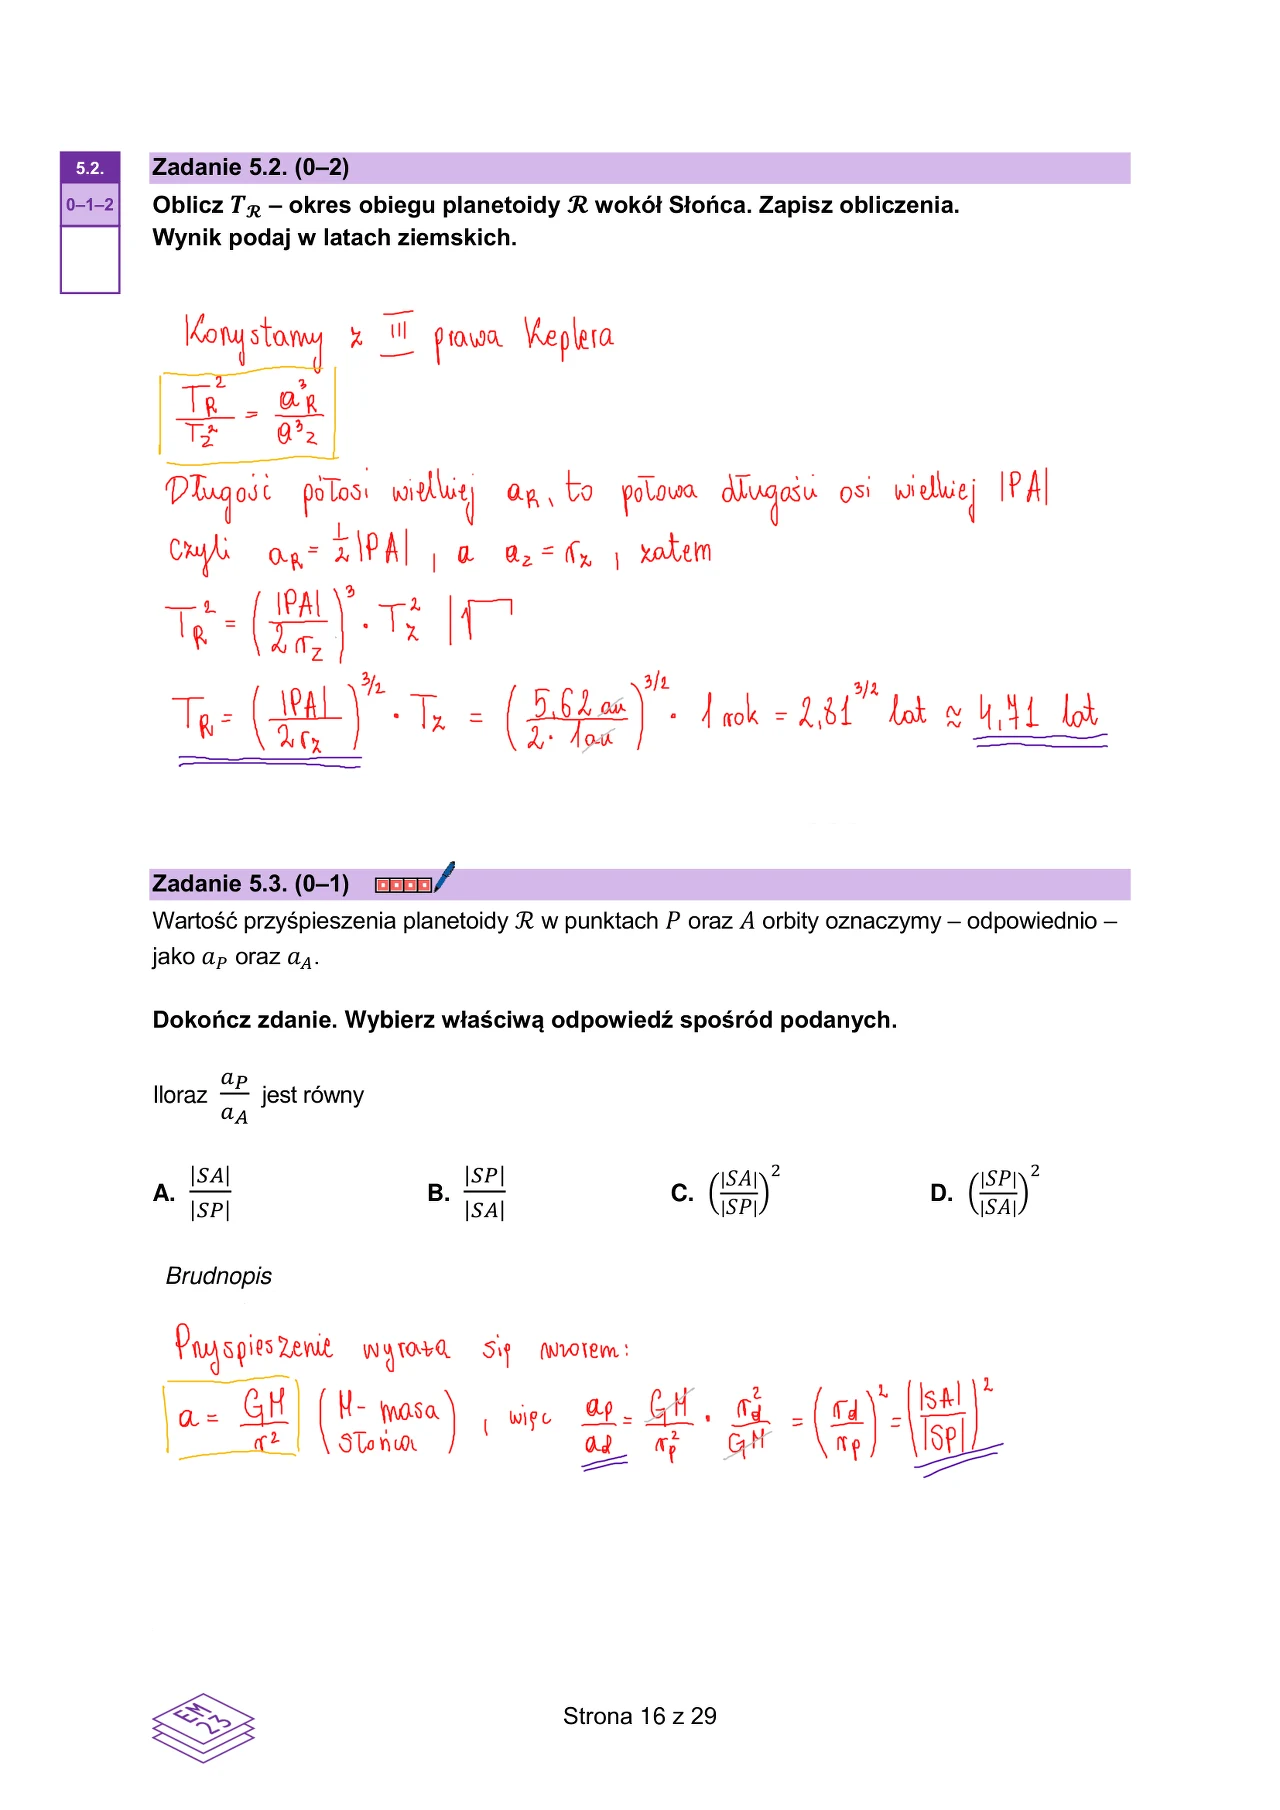 5.2.
0–1–2
Zadanie 5.2. (0–2)
Oblicz T_ℛ – okres obiegu planetoidy ℛ wokół Słońca. Zapisz obliczenia.
Wynik podaj w latach ziemskich.
Korzystamy z III prawa Keplera
T_R^2 / T_Z^2 = a^3_R / a^3_Z
Długość półosi wielkiej a_R, to połowa długości osi wielkiej |PA|
czyli a_R = 1/2 |PA| , a a_Z = r_Z , zatem
T_R^2 = (|PA| / 2r_Z)^3 · T_Z^2 |√
T_R = (|PA| / 2r_Z)^3/2 · T_Z = (5,62 au / 2 · 1au)^3/2 · 1 rok = 2,81^3/2 lat ≈ 4,71 lat
Zadanie 5.3. (0–1)
Wartość przyśpieszenia planetoidy ℛ w punktach P oraz A orbity oznaczymy – odpowiednio –
jako a_P oraz a_A.
Dokończ zdanie. Wybierz właściwą odpowiedź spośród podanych.
Iloraz a_P / a_A jest równy
A. |SA| / |SP| B. |SP| / |SA| C. (|SA| / |SP|)^2 D. (|SP| / |SA|)^2
Brudnopis
Pryspieszenie wyraża się wzorem:
a = GM / r^2 (M - masa Słońca) , więc a_p / a_d = GM / r_p^2 · r_d^2 / GM = (r_d / r_p)^2 = (|SA| / |SP|)^2
EM
23
Strona 16 z 29